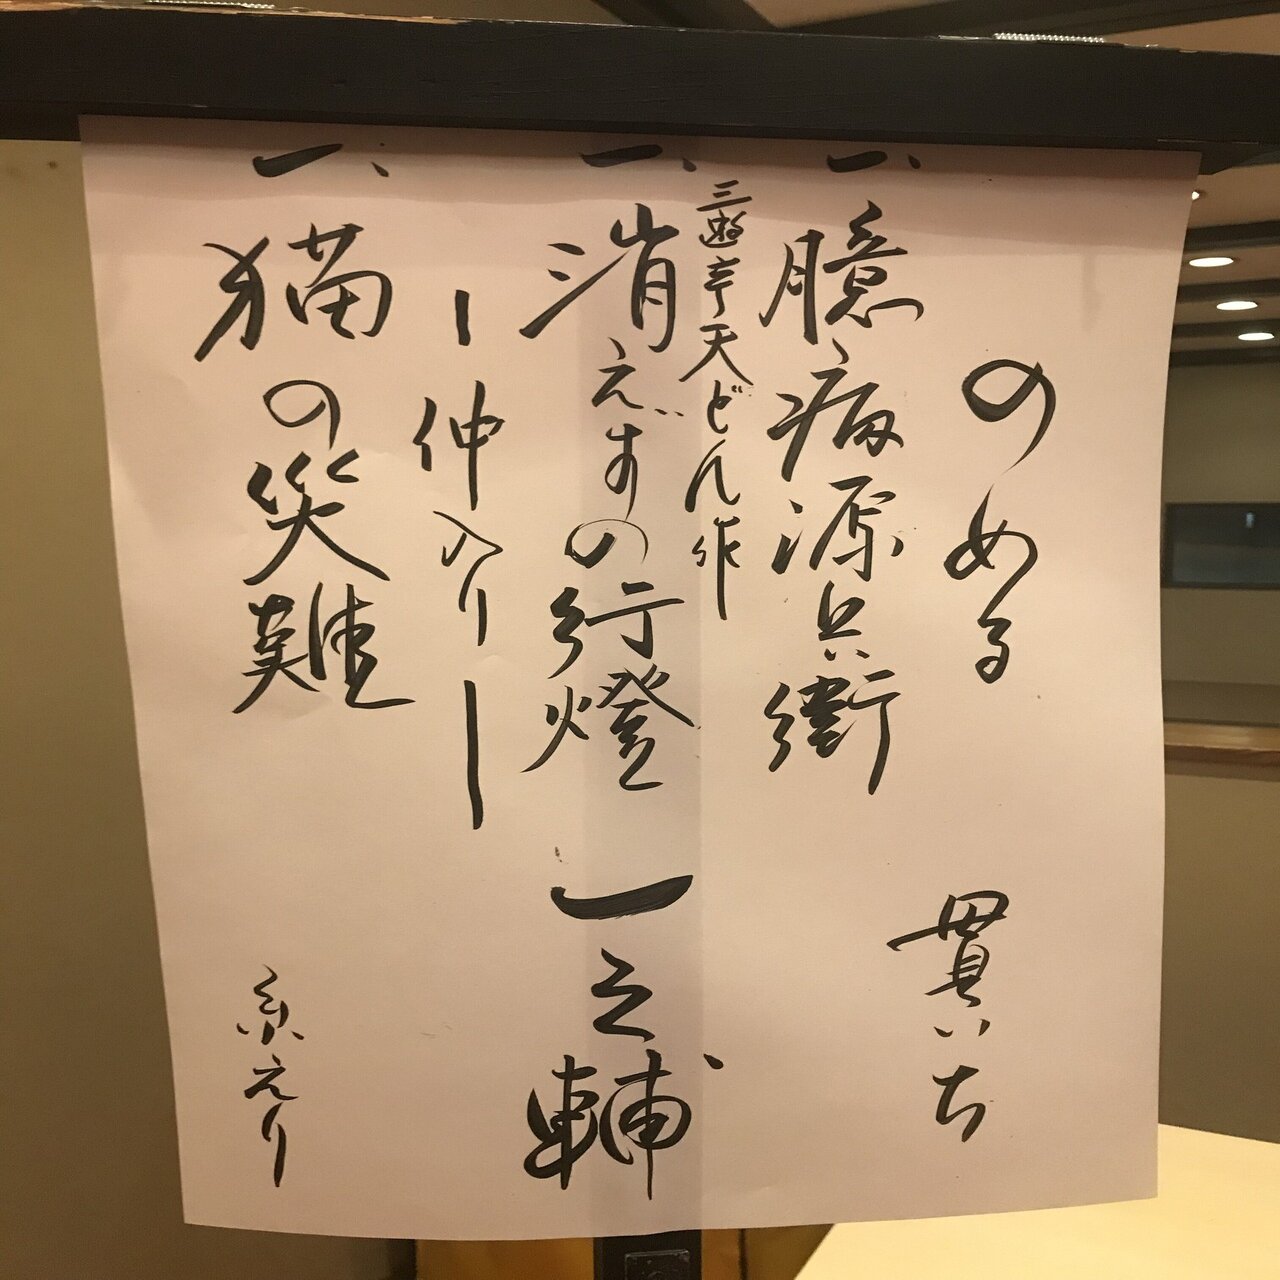 のめる 貫いち
一、臆病源兵衛
三遊亭天どん作
一、消えずの行燈 一之輔
ー仲入りー
一、猫の災難 糸えり